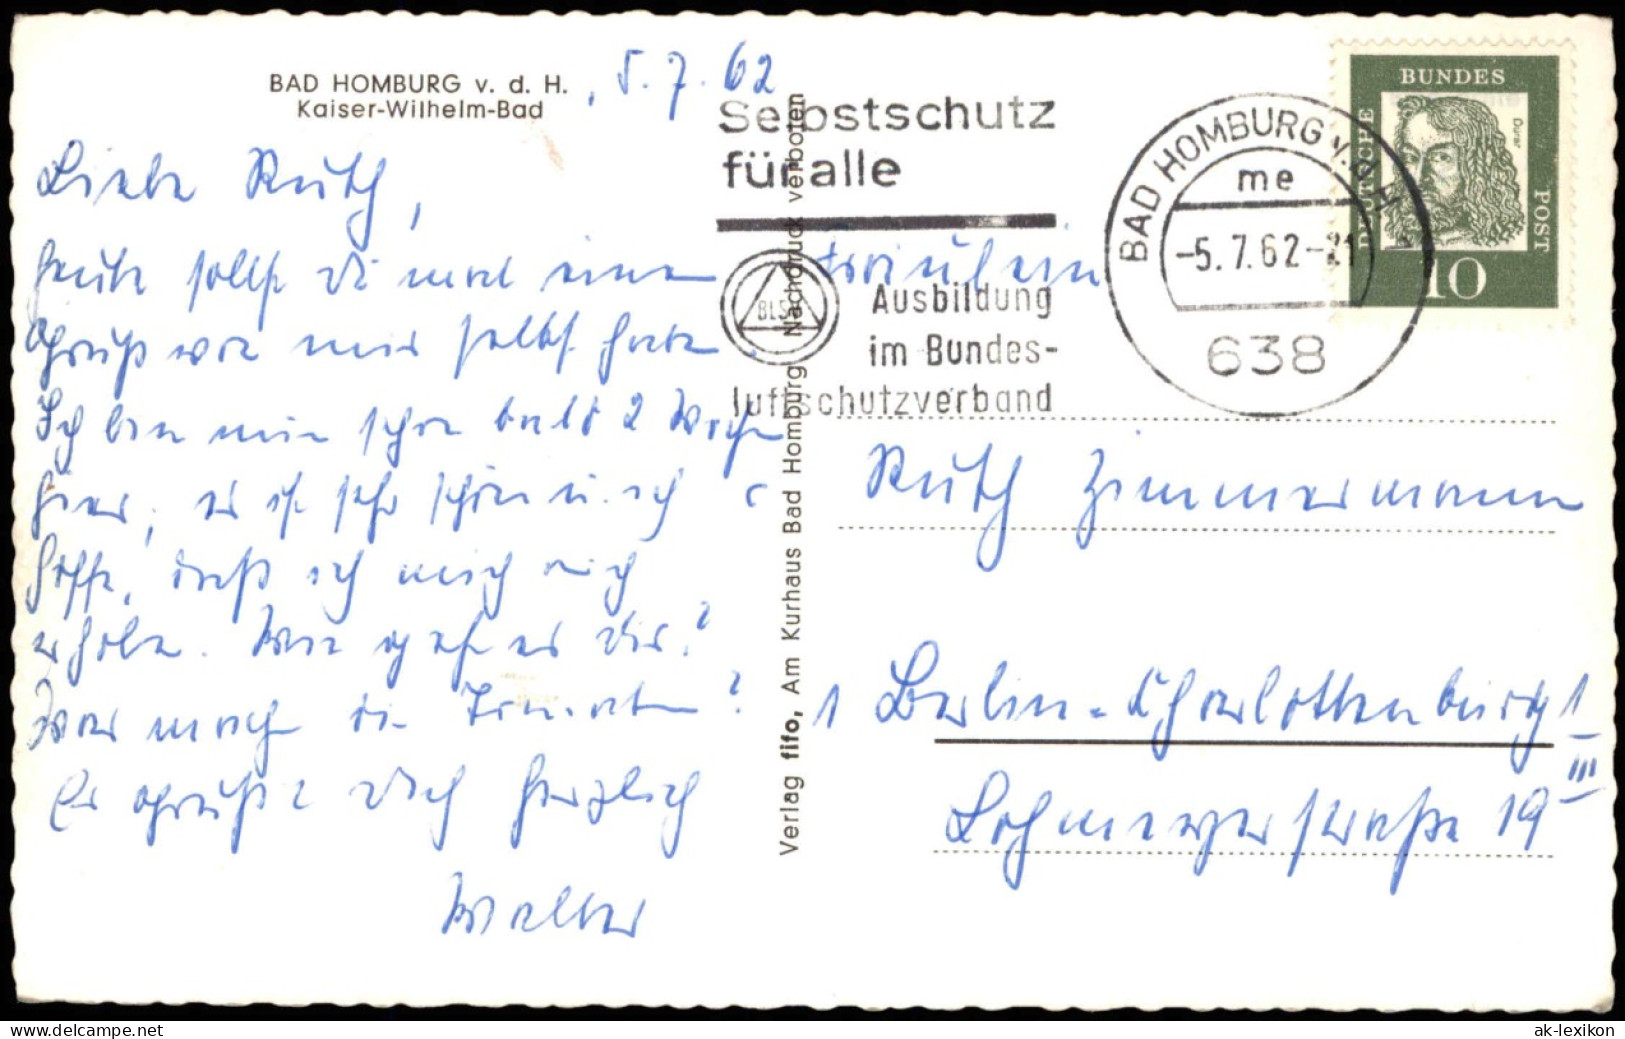 BAD HOMBURG v. d. H.
Kaiser-Wilhelm-Bad
5.7.62
Liebe Ruth,
heute sollst Du mal einen
Gruß von mir selbst haben.
Ich bin nun schon bald 2 Wochen
hier, es ist sehr schön u. ich
hoffe, daß ich mich
erhole. Wie geht es Dir?
Was macht die
Es grüßt Dich herzlich
Walter
Verlag fifo, Am Kurhaus Bad Homburg Nachdruck verboten
Selbstschutz
für alle
BLSV
Ausbildung
im Bundes-
luftschutzverband
BAD HOMBURG v.d.H.
me
-5.7.62-21
638
DEUTSCHE
BUNDES
POST
Dürer
10
Fräulein
Ruth Zimmermann
1 Berlin-Charlottenburg 1
Lohmeyerstraße 19 III
ak-lexikon
www.delcampe.net